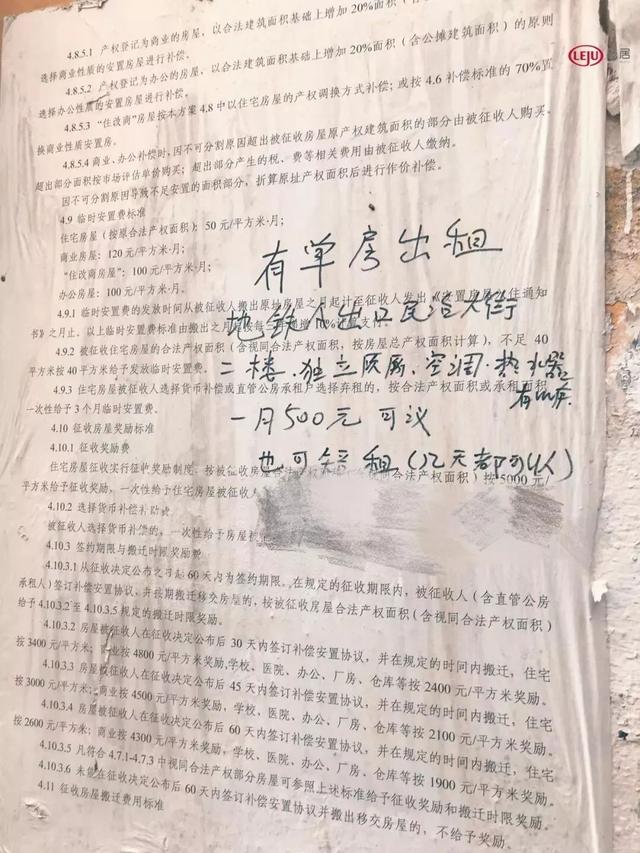 LEJU 居
4.8.5.1 产权登记为商业的房屋，以合法建筑面积基础上增加20%面积（
选择商业性质的安置房屋进行补偿。
4.8.5.2 产权登记为办公的房屋，以合法建筑面积基础上增加20%面积（含公摊建筑面积）的原则
选择办公性质的安置房屋进行补偿。
4.8.5.3 “住改商”房屋按本方案4.8中以住宅房屋的产权调换方式补偿；或按4.6补偿标准的70%置
换商业性质安置房。
4.8.5.4 商业、办公补偿时，因不可分割原因超出被征收房屋原产权建筑面积的部分由被征收人购买。
超出部分面积按市场评估单价购买；超出部分产生的税、费等相关费用由被征收人缴纳。
因不可分割原因导致不足安置的面积部分，折算原址产权面积后进行作价补偿。
4.9 临时安置费标准
住宅房屋（按原合法产权面积）：50元/平方米·月；
商业房屋：120元/平方米·月；
“住改商房屋”：100元/平方米·月；
办公房屋：100元/平方米·月。
有单房出租
4.9.1 临时安置费的发放时间从被征收人搬出原址房屋之月起计至征收人发出《安置房屋入住通知
书》之月止。以上临时安置费标准由搬出之月
地铁A出口民治大街
4.9.2 被征收住宅房屋的合法产权面积（含视同合法产权面积，按房屋总产权面积计算），不足40
平方米按40平方米给予发放临时安置费。
二楼·独立 空调·热水器
4.9.3 住宅房屋被征收人选择货币补偿或直管公房承租户选择弃租的，按合法产权面积或承租面积
一次性给予3个月临时安置费。
一月500元可议
4.10 征收房屋奖励标准
4.10.1 征收奖励费
也可短租（几天都可以）
住宅房屋征收实行征收奖励制度，按被征收房屋合法产权面积（含视同合法产权面积）按5000元/
平方米给予征收奖励，一次性给予住宅房屋被征收人
4.10.2 选择货币补偿补贴费
被征收人选择货币补偿的，一次性给予房屋被
4.10.3 签约期限与搬迁时限奖励费
4.10.3.1 从征收决定公布之日起60天内为签约期限。在规定的征收期限内，被征收人（含直管公房
承租人）签订补偿安置协议，并按期搬迁移交房屋的，按被征收房屋合法产权面积（含视同合法产权面积）
给予4.10.3.2至4.10.3.5规定的搬迁时限奖励。
4.10.3.2 房屋被征收人在征收决定公布后30天内签订补偿安置协议，并在规定的时间内搬迁，住宅
按3400元/平方米；商业按4800元/平方米奖励，学校、医院、办公、厂房、仓库等按2400元/平方米奖励。
4.10.3.3 房屋被征收人在征收决定公布后45天内签订补偿安置协议，并在规定的时间内搬迁，住宅
按3000元/平方米；商业按4500元/平方米奖励，学校、医院、办公、厂房、仓库等按2100元/平方米奖励。
4.10.3.4 房屋被征收人在征收决定公布后60天内签订补偿安置协议，并在规定的时间内搬迁，住宅
按2600元/平方米；商业按4300元/平方米奖励，学校、医院、办公、厂房、仓库等按1900元/平方米奖励。
4.10.3.5 凡符合4.7.1-4.7.3中视同合法产权部分房屋可参照上述标准给予征收奖励和搬迁时限奖励。
4.10.3.6 未能在征收决定公布后60天内签订补偿安置协议并搬出移交房屋的，不给予奖励。
4.11 征收房屋搬迁费用标准